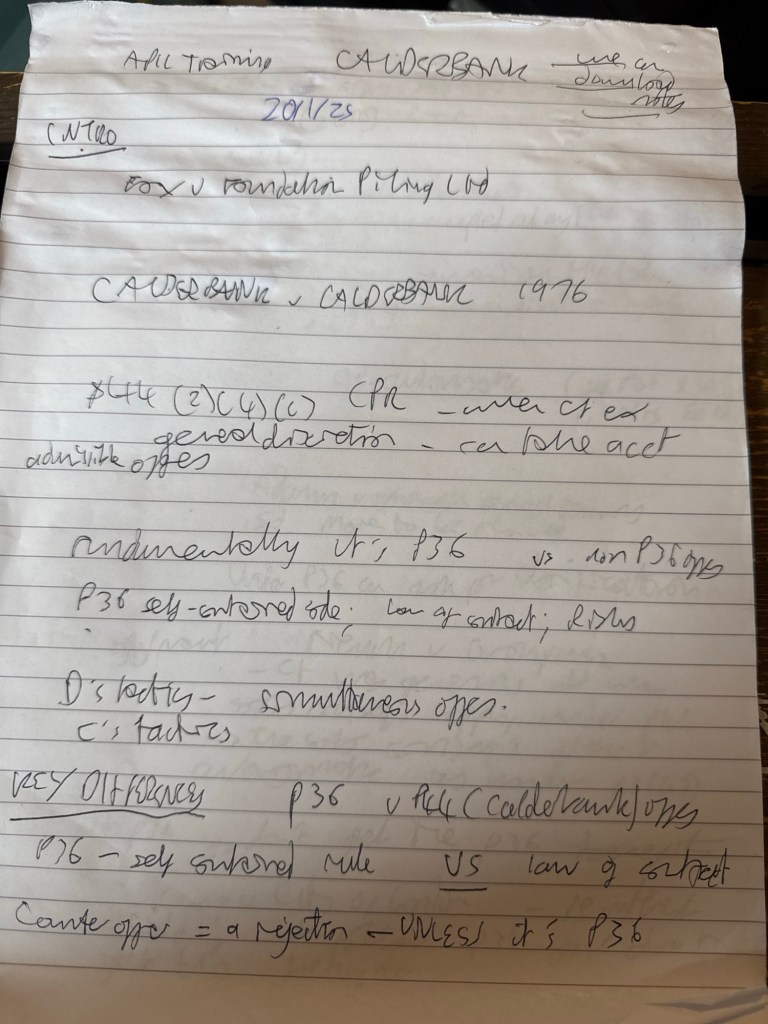 APIL Training CALDERBANK – we can
download
notes
20/1/25
INTRO
Fox v Foundation Piling Ltd
CALDERBANK v CALDERBANK 1976
44 (2)(4)(c) CPR – when ct ex
general discretion – can take acct
admissible offers
Fundamentally it's P36 vs non P36 offers
P36 self-contained code; law of contract; Risks
D's tactics – simultaneous offers.
C's tactics
KEY DIFFERENCES P36 v P44 (Calderbank) offers
P36 – self contained rule VS law of contract
Counter offer = a rejection – UNLESS it's P36